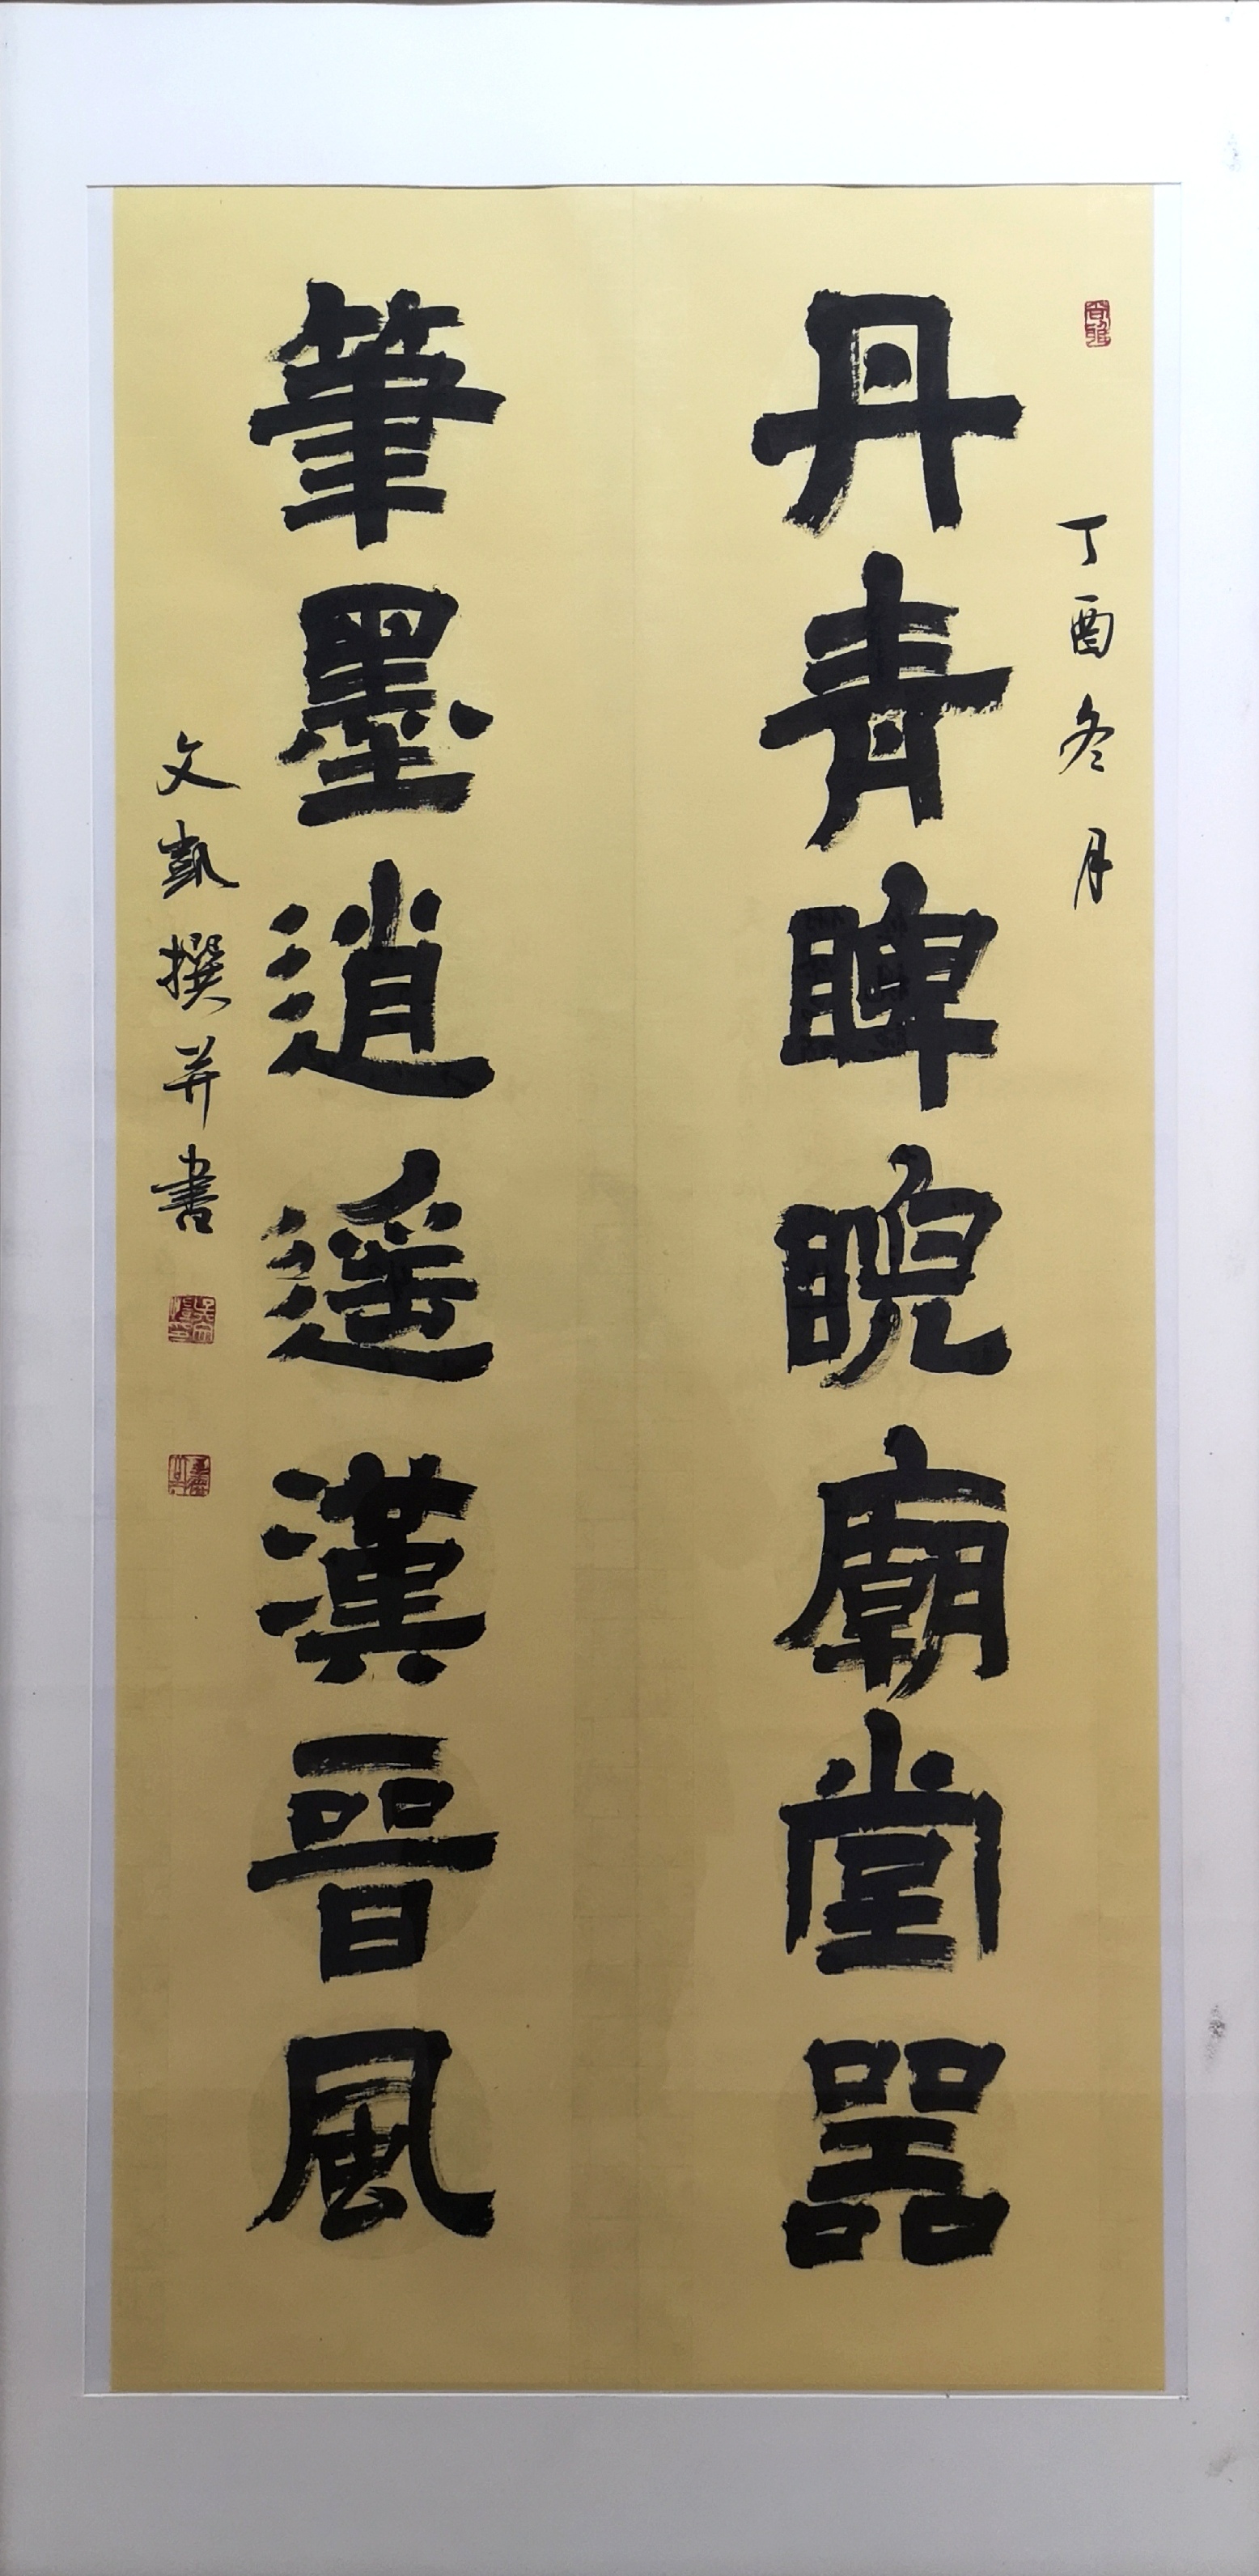 丁酉冬月
丹青睥睨廟堂器
筆墨逍遥漢晉風
文凱撰并書